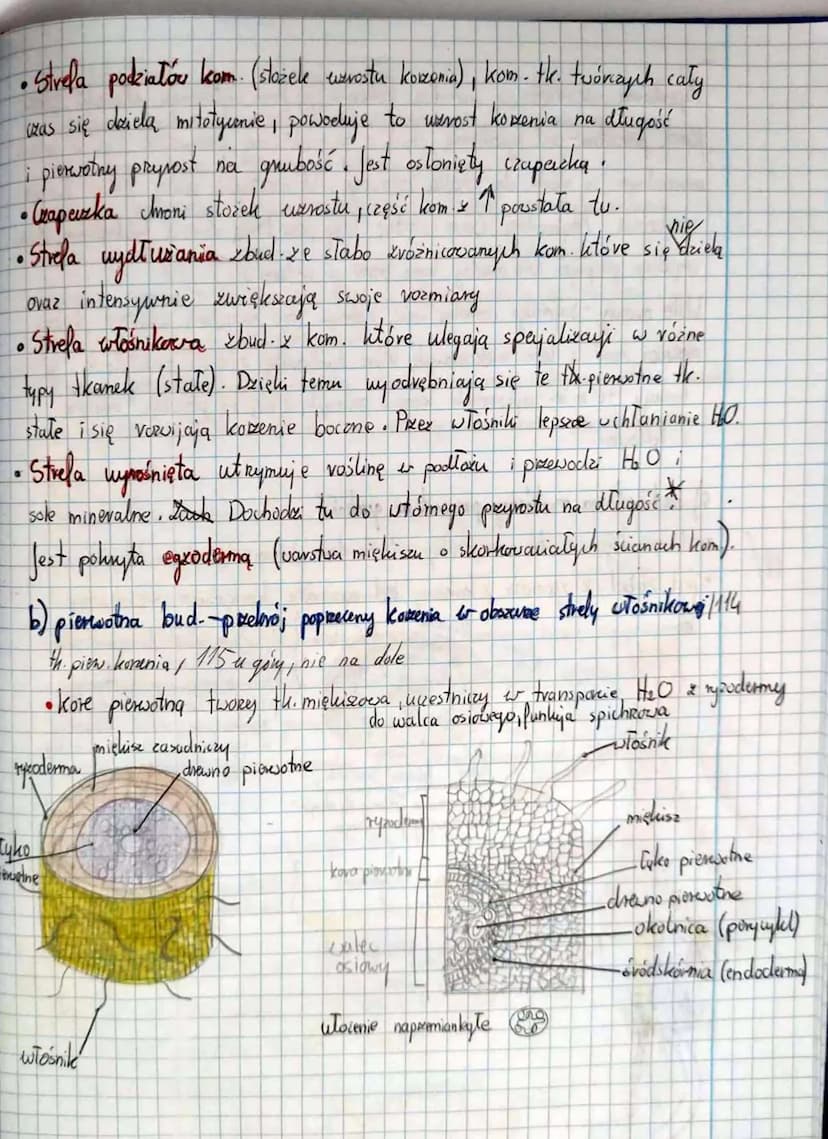 • Strefa podziałów kom. (stożek wzrostu korzenia), kom. tk. twórczych cały
czas się dzielą mitotycznie, powoduje to wzrost korzenia na długość
i pierwotny przyrost na grubość. Jest osłonięty czapeczką.
• Czapeczka chroni stożek wzrostu, część kom. z ↑ powstała tu.
• Strefa wydłużania zbud. ze słabo zróżnicowanych kom. które się nie dzielą
oraz intensywnie zwiększają swoje rozmiary
• Strefa włośnikowa zbud. z kom. które ulegają specjalizacji w różne
typy tkanek (stałe). Dzięki temu wyodrębniają się te pierwotne tk.
stałe i się rozwijają korzenie boczne. Przez włośniki lepsze uchłanianie H₂O.
• Strefa wyrośnięta utrzymuje roślinę w podłożu i przewodzi H₂O i
sole mineralne. Dochodzi tu do wtórnego przyrostu na długość.*
Jest pokryta egzodermą (warstwa miękiszu o skorkowaciałych ścianach kom).
b) pierwotna bud. - przekrój poprzeczny korzenia w obszarze strefy włośnikowej/114
tk. pierw. korzenia, 115 u góry, nie na dole
• Korę pierwotną tworzy tk. miękiszowa, uczestniczy w transporcie H₂O z ryzodermy
do walca osiowego, funkcja spichrzowa
miękisz zasadniczy
ryzoderma
drewno pierwotne
łyko
pierwotne
włośnik
włośnik
ryzoderma
miękisz
kora pierwotna
łyko pierwotne
drewno pierwotne
okolnica (perycykl)
walec
osiowy
śródskórnia (endoderma)
ułożenie naprzemianległe